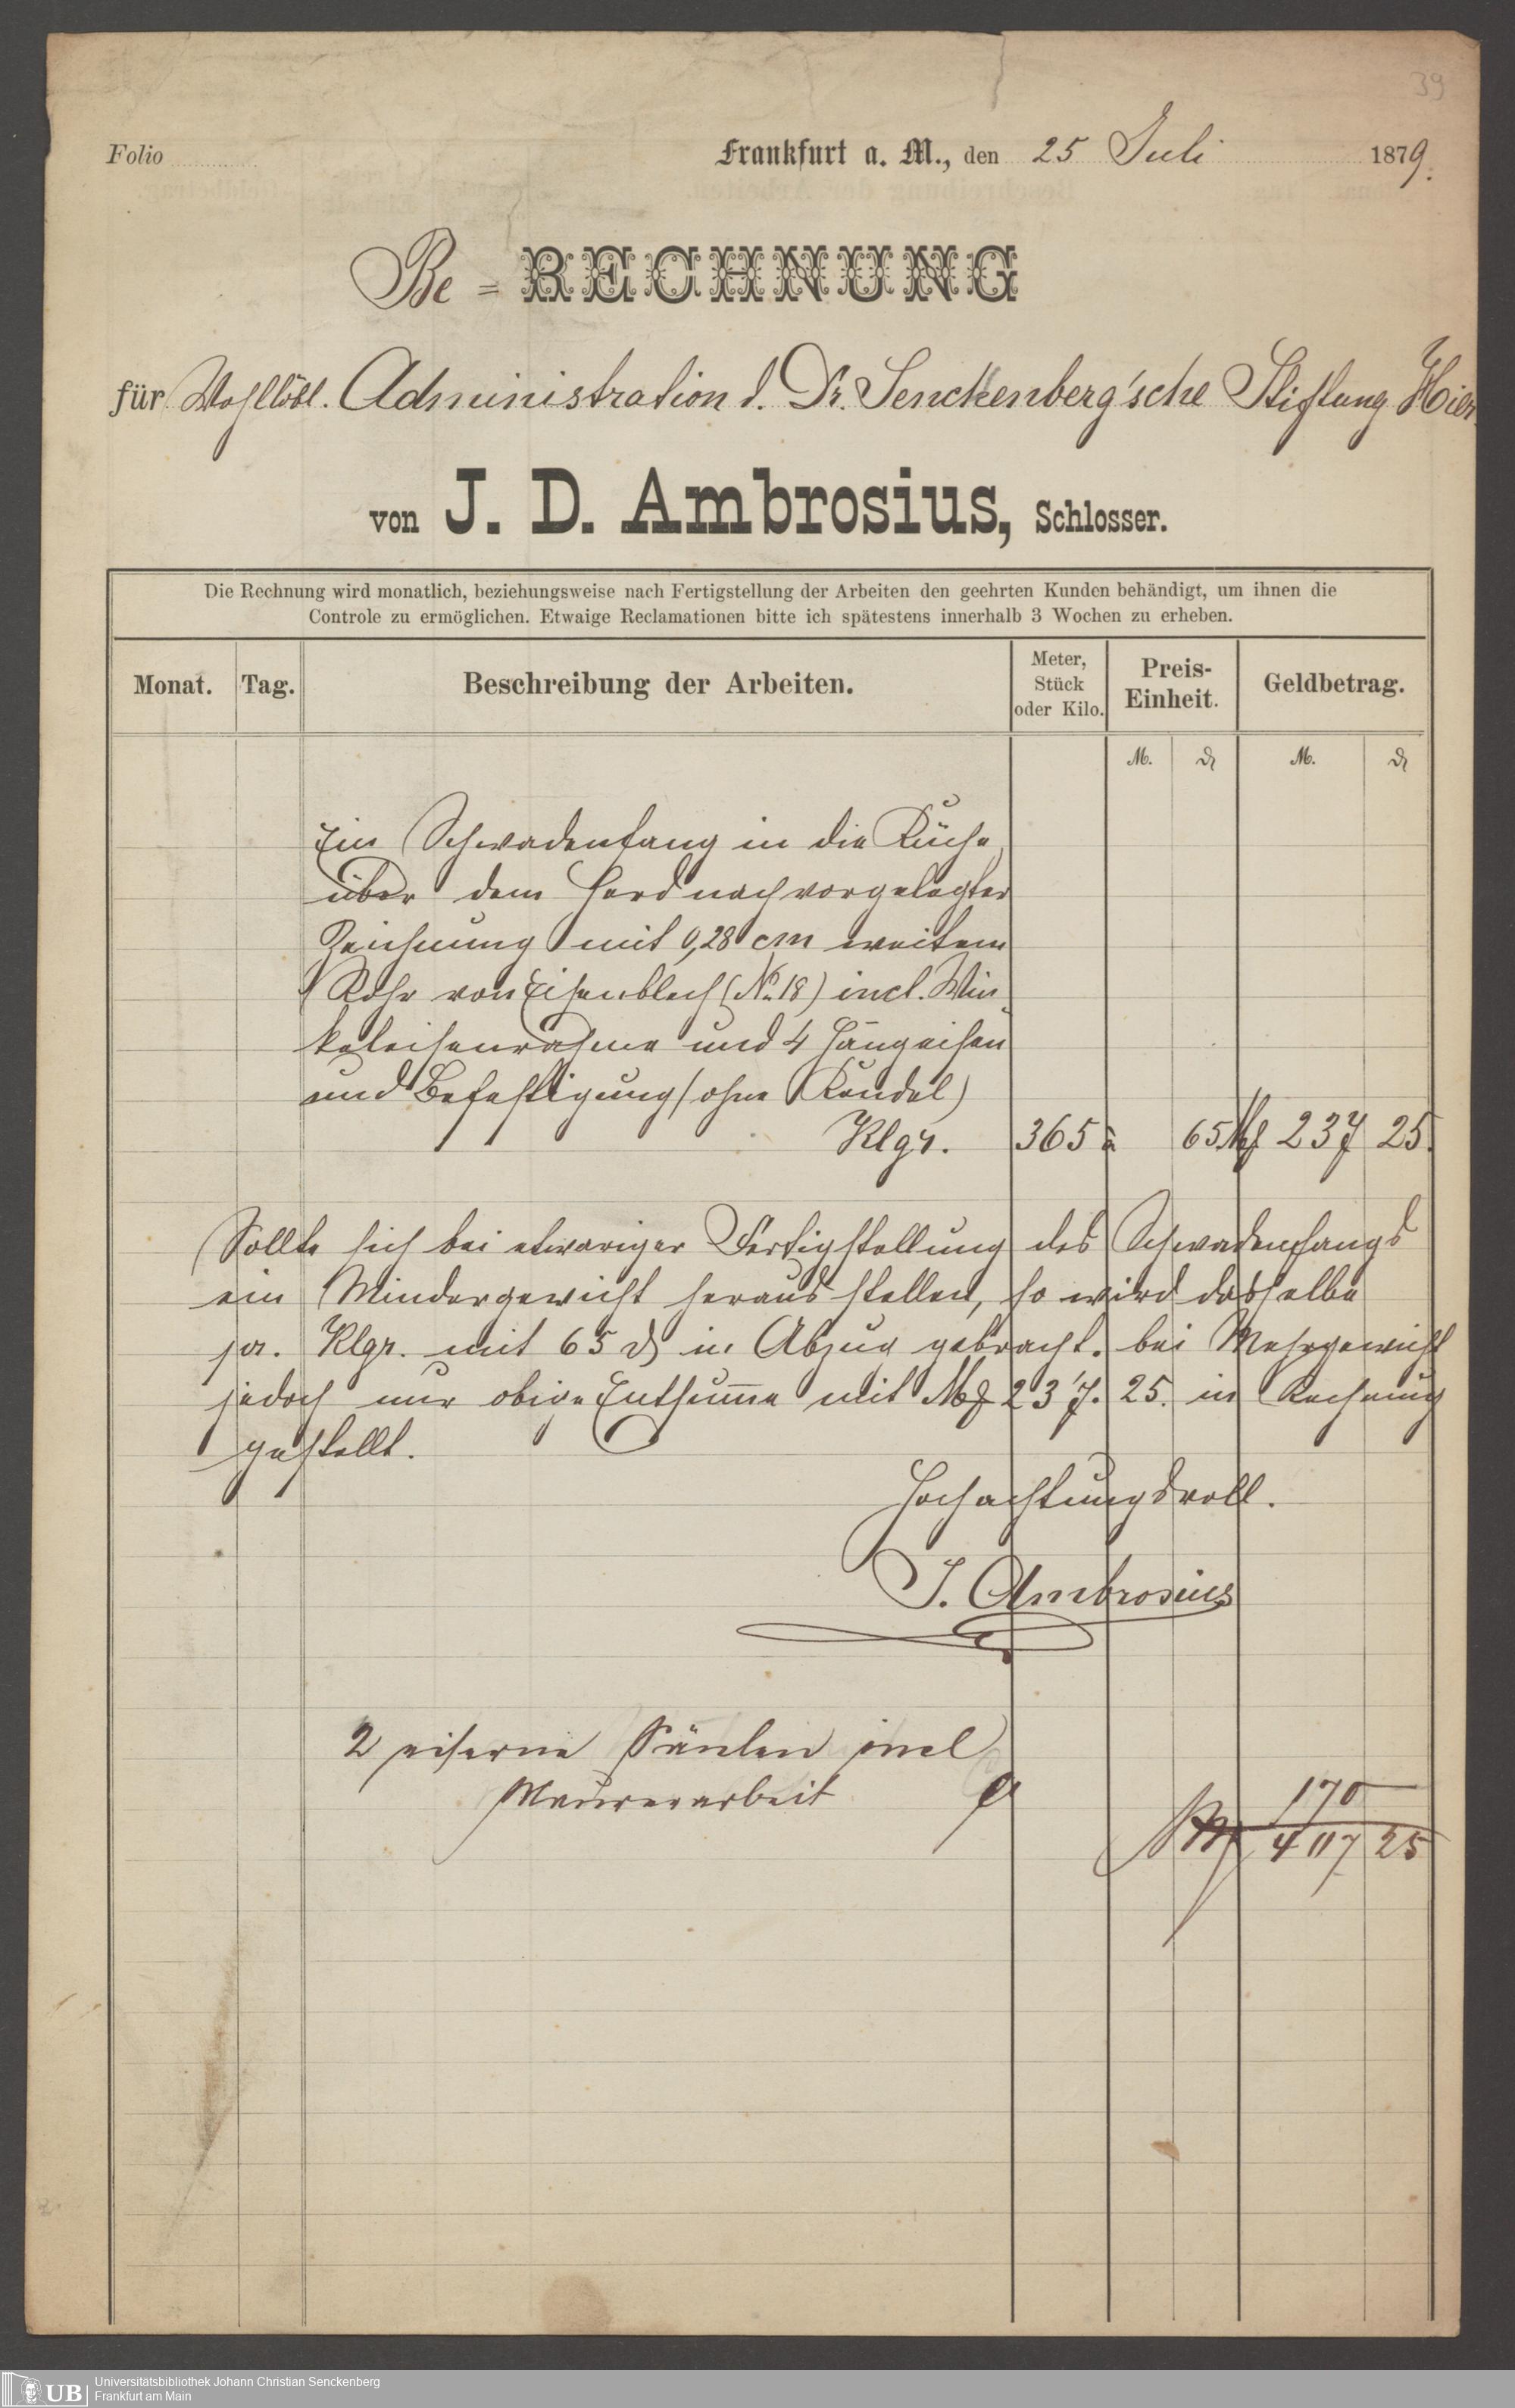 39
Folio
Frankfurt a. M., den 25 Juli 1879.
Be = RECHNUNG
für Wohllöbl. Administration d. Dr. Senckenberg'sche Stiftung Hier.
von J. D. Ambrosius, Schlosser.
Die Rechnung wird monatlich, beziehungsweise nach Fertigstellung der Arbeiten den geehrten Kunden behändigt, um ihnen die
Controle zu ermöglichen. Etwaige Reclamationen bitte ich spätestens innerhalb 3 Wochen zu erheben.
Monat. Tag. Beschreibung der Arbeiten. Meter, Stück oder Kilo. Preis-Einheit. Geldbetrag.
M. ₰ M. ₰
Ein Schwadenfang in die Küche
über dem Herd nach vorgelegter
Zeichnung mit 0,28 cm weitem
Rohr von Eisenblech (No. 18) incl. Win
keleisenrahme und 4 Hängeisen
und Befestigung (ohne Kandel)
Klgr. 365 à 65 Mk 237 25.
Sollte sich bei etwaiger Fertigstellung des Schwadenfangs
ein Mindergewicht heraus stellen, so wird dasselbe
pr. Klgr. mit 65 ₰ in Abzug gebracht. bei Mehrgewicht
jedoch nur obige Entsumme mit Mk 237. 25. in Rechnung
gestellt.
Hochachtungsvoll.
J. Ambrosius
2 eiserne Säulen incl
Maurerarbeit 170
M 407 25
UB Universitätsbibliothek Johann Christian Senckenberg
Frankfurt am Main